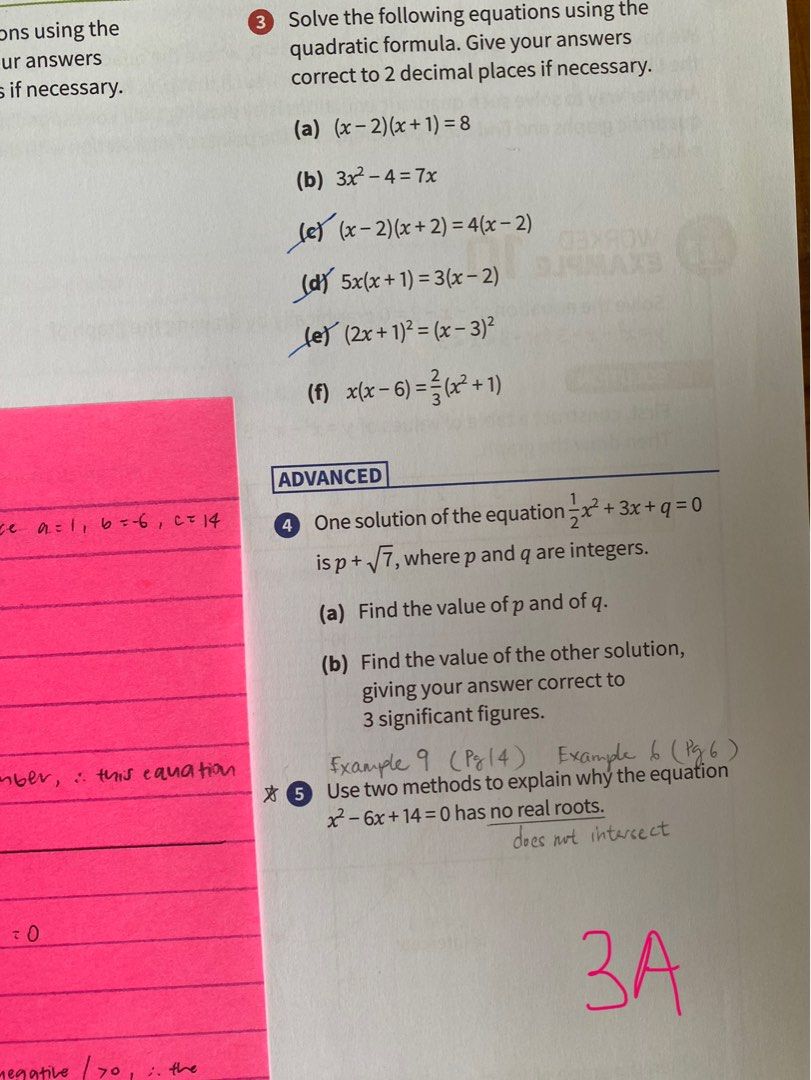 ons using the
ur answers
s if necessary.
3 Solve the following equations using the
quadratic formula. Give your answers
correct to 2 decimal places if necessary.
(a) (x − 2)(x + 1) = 8
(b) 3x² − 4 = 7x
(c) (x − 2)(x + 2) = 4(x − 2)
(d) 5x(x + 1) = 3(x − 2)
(e) (2x + 1)² = (x − 3)²
(f) x(x − 6) = 2/3(x² + 1)
ADVANCED
4 One solution of the equation 1/2x² + 3x + q = 0
is p + √7, where p and q are integers.
(a) Find the value of p and of q.
(b) Find the value of the other solution,
giving your answer correct to
3 significant figures.
Example 9 (Pg 14) Example 6 (Pg 6)
☆ 5 Use two methods to explain why the equation
x² − 6x + 14 = 0 has no real roots.
does not intersect
3A
ce a = 1, b = -6, c = 14
mber, ∴ this equation
= 0
negative / >0, ∴ the